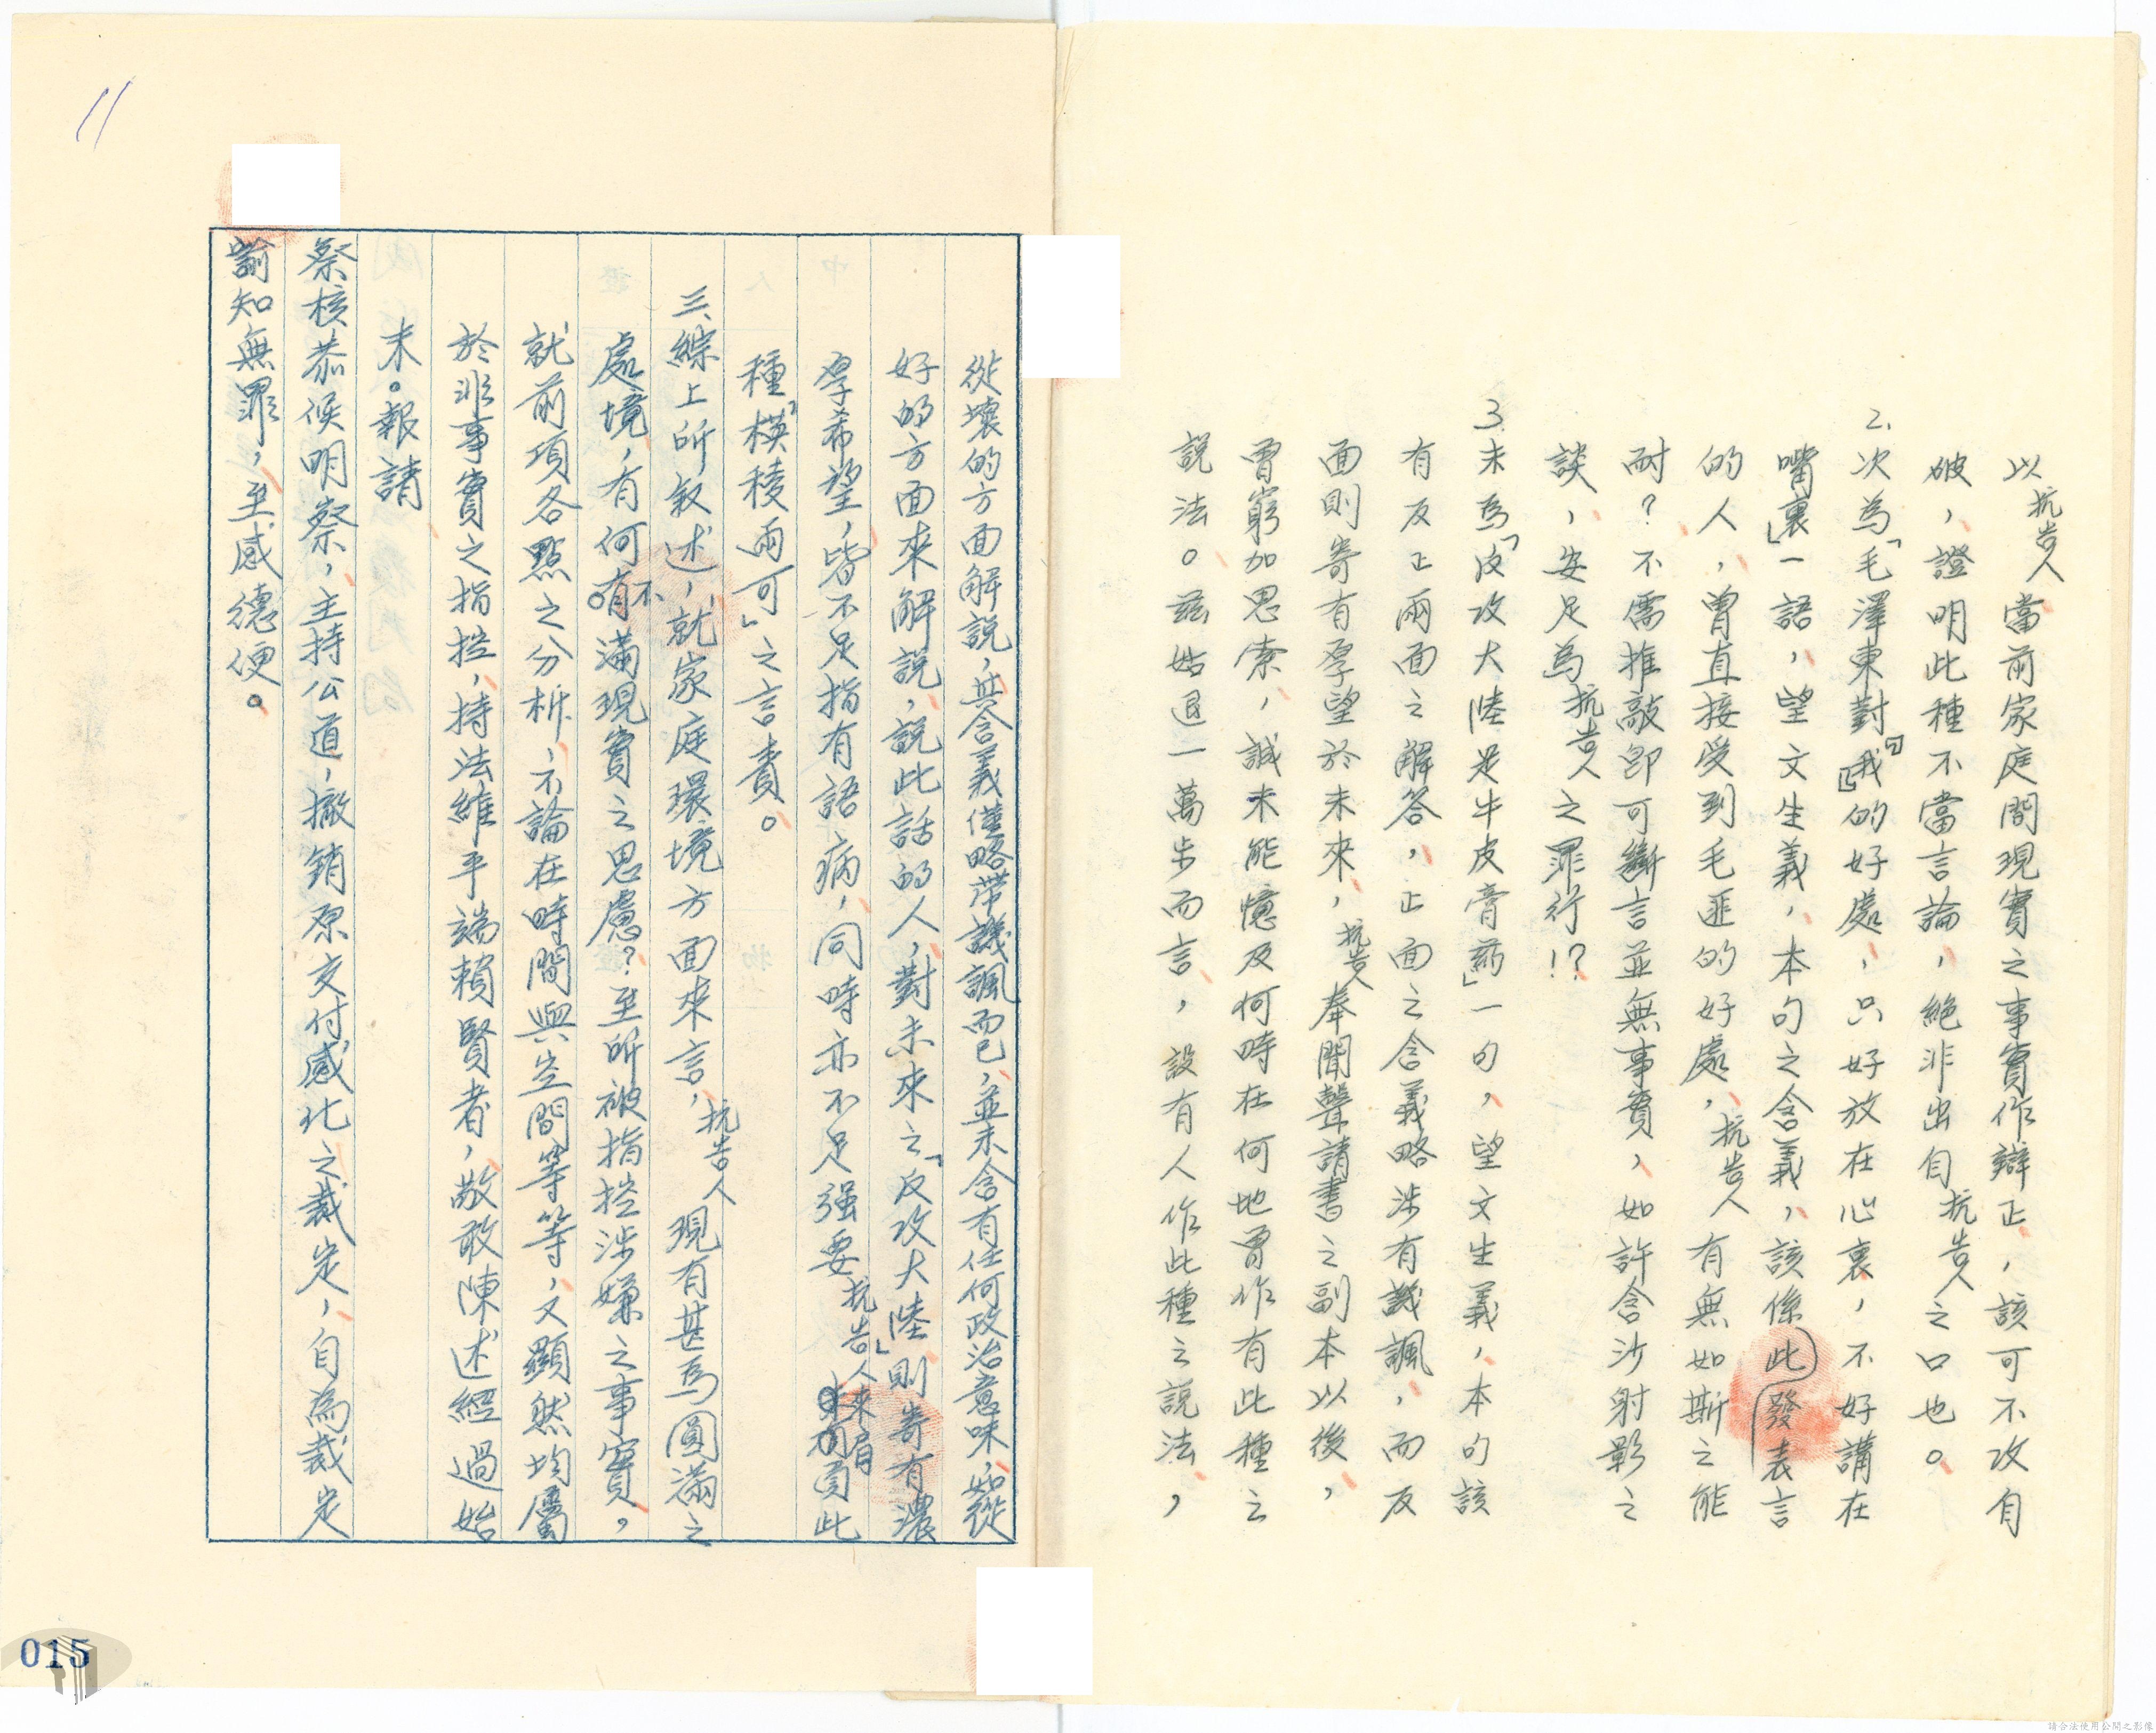 以抗告人當前家庭間現實之事實作辯正，該可不攻自
破，證明此種不當言論，絕非出自抗告人之口也。
2.次為「毛澤東對『我』的好處，只好放在心裏，不好講在
嘴裏」一語，望文生義，本句之含義，該係此發表言
的人，曾直接受到毛匪的好處，抗告人有無如斯之能
耐？不需推敲即可斷言並無事實，如許含沙射影之
談，安足為抗告人之罪行！？
3.末為「反攻大陸是牛皮膏葯」一句，望文生義，本句該
有反正兩面之解答，正面之含義略涉有譏諷，而反
面則寄有孕望於未來，抗告人奉閱聲請書之副本以後，
曾窮加思索，誠未能憶及何時在何地曾作有此種之
說法。茲姑退一萬步而言，設有人作此種之說法，
從壞的方面解說，其含義僅略帶譏諷而已，並未含有任何政治意味，如從
好的方面來解說，說此話的人，對未來之「反攻大陸」則寄有濃
孕希望，皆不足指有語病，同時亦不足强要抗告人來肩負此
種「模稜兩可」之言責。
三、綜上所敘述，就家庭環境方面來言，抗告人現有甚為圓滿之
處境，有何不滿現實之思慮？至所被指控涉嫌之事實，
就前項各點之分析，不論在時間與空間等等，又顯然均屬
於非事實之指控，持法維平端賴賢者，敬敢陳述經過始
末。報請
察核恭候明察，主持公道，撤銷原交付感化之裁定，自為裁定
諭知無罪，至感德便。
11
015
請合法使用公開之影像